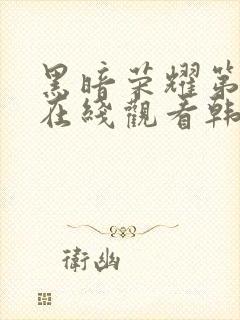 黑暗荣耀第
在綫觀看韩
衛幽